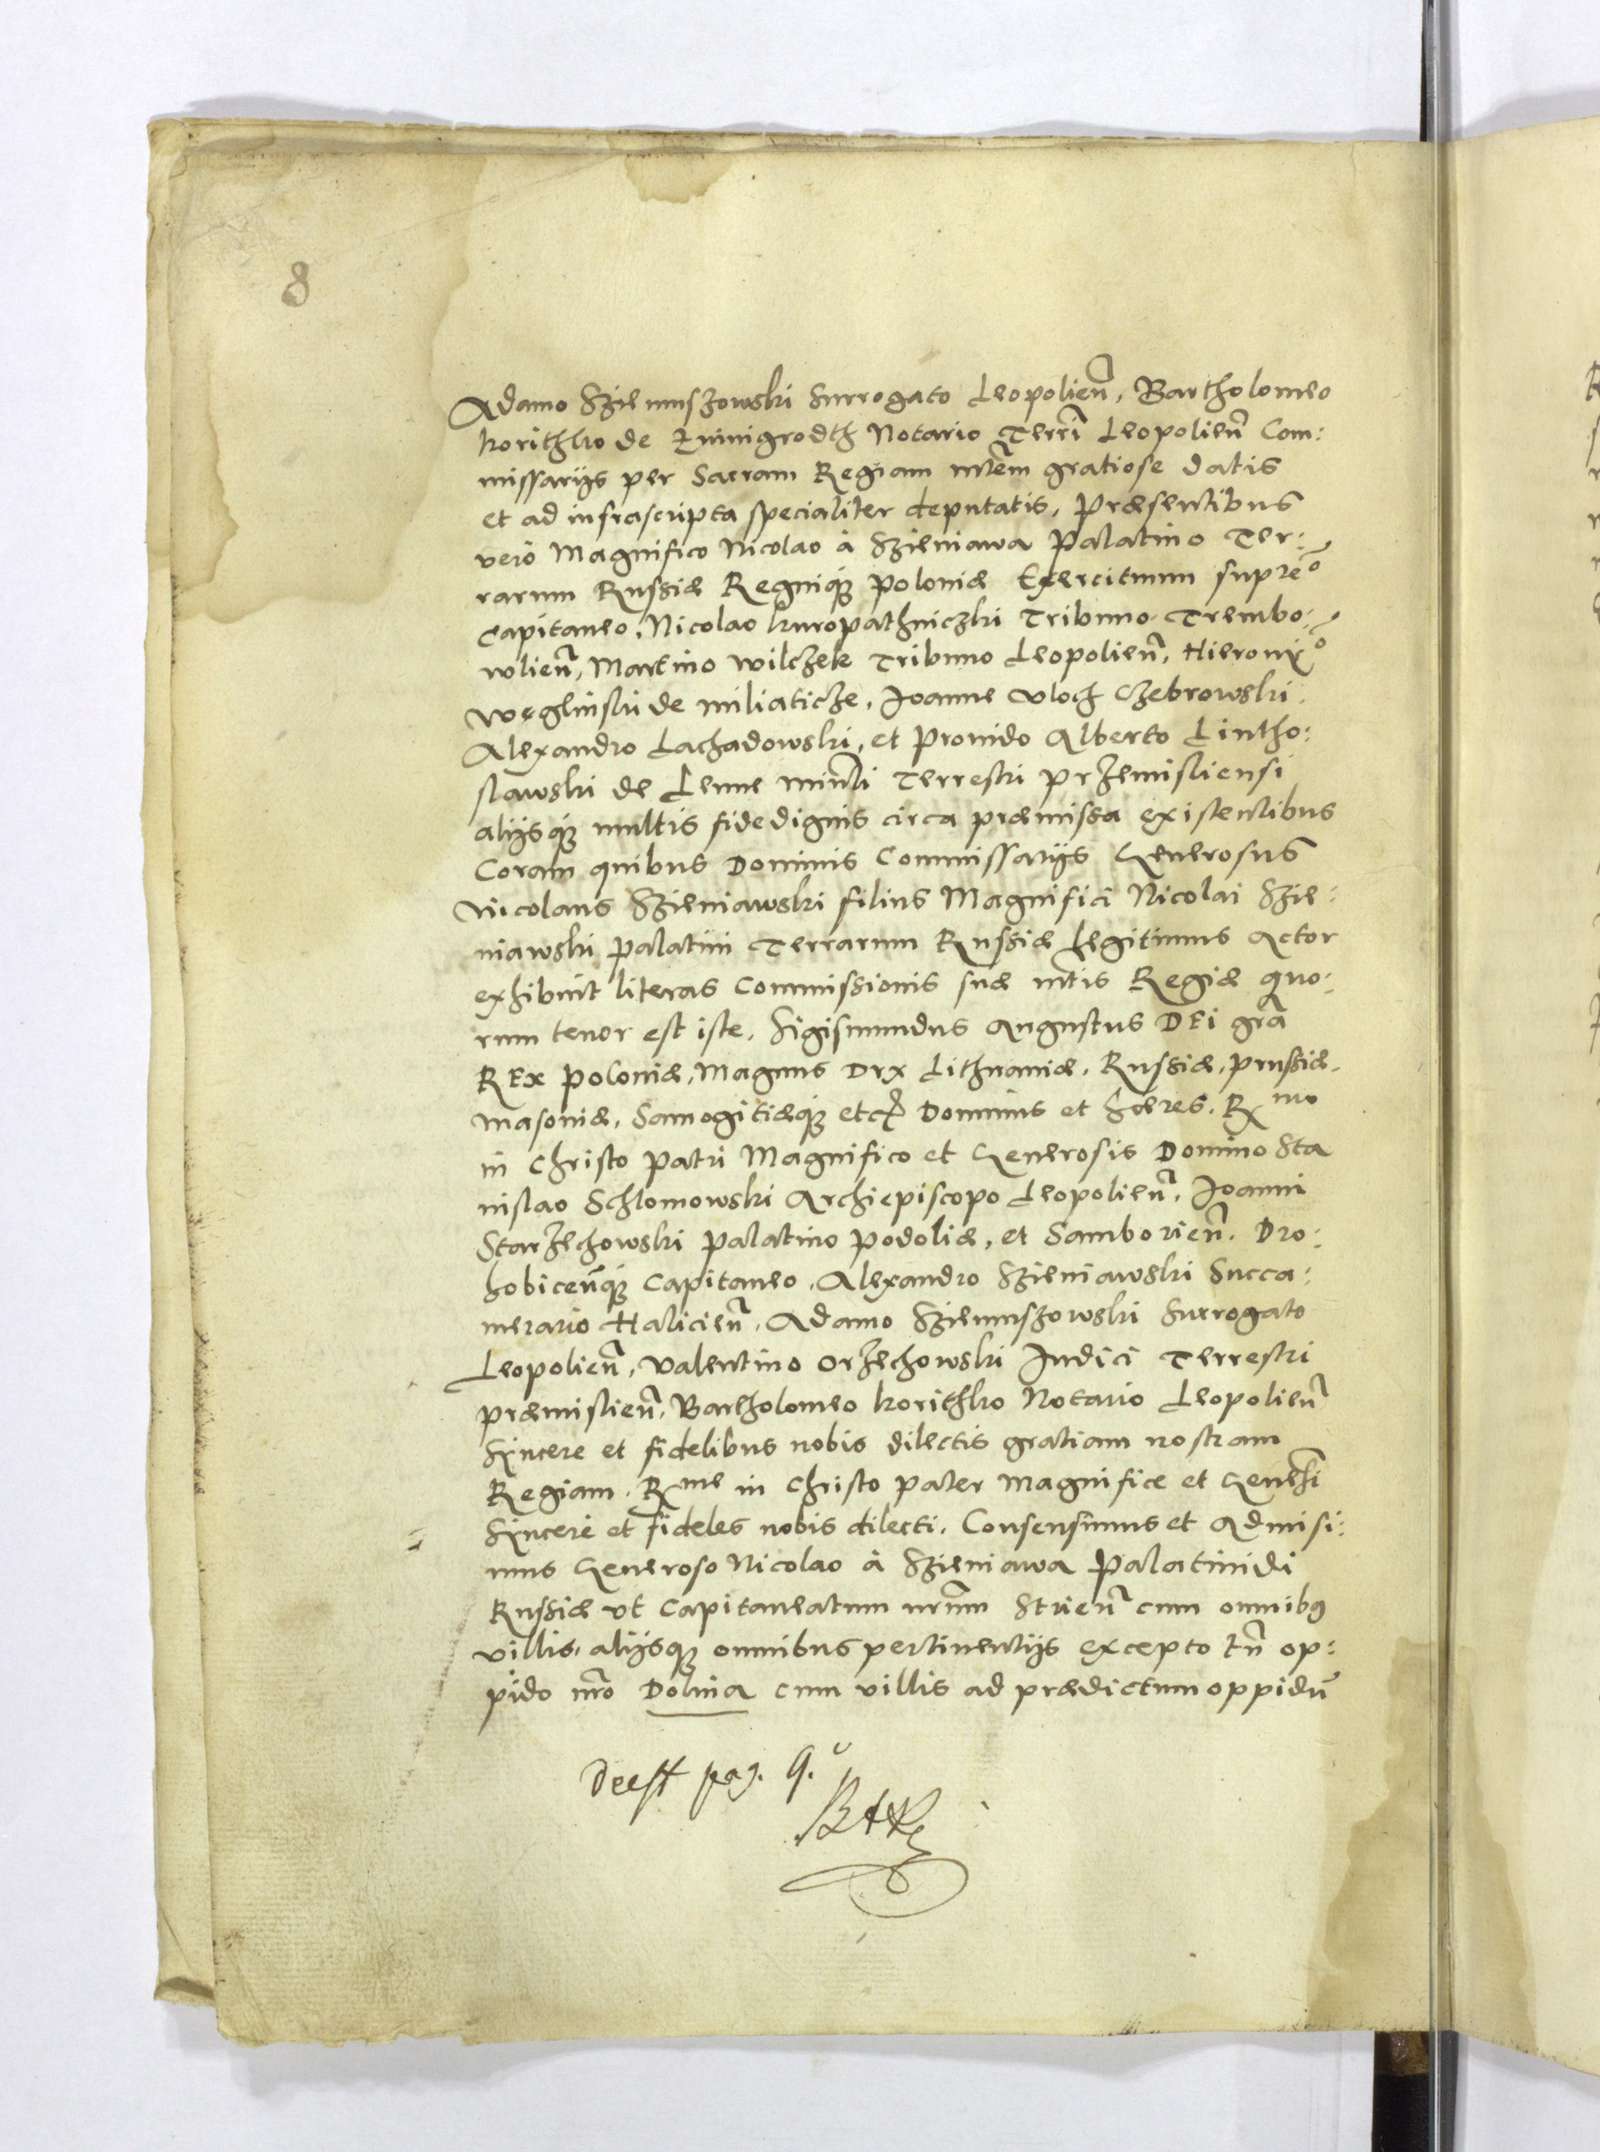 8
Adamo Szienuszowski Surrogato Leopolieñ, Bartholomeo
korithko de Zminigrodth Notario Terrĩ Leopolieñ Com:
missarijs per Sacram Regiam mtẽm gratiose datis
et ad infrascripta specialiter deputatis, Præsentibus
vero Magnifico Nicolao à Szieniawa Palatino Ter:
rarum Russiæ Regniq3 Poloniæ Exercituum supreº
Capitaneo, Nicolao kuropathniczki Tribuno Trembo:
wlieñ, Martino Wilczek Tribuno Leopolieñ, Hieronỹº
Węglinski de Miliaticze, Joanne Vloch Czebrowski
Alexandro Lachadowski, et Provido Alberto Lintho:
slawski de Lenne Minrli Terrestri Przemisliensi
alijsq3 multis fidedignis circa præmissa existentibus
Coram quibus Dominis Commissarijs Generosus
Nicolaus Szieniawski filius Magnifici Nicolai Szie:
niawski Palatini Terrarum Russiæ legitimus Actor
exhibuit literas Commissionis suæ mtis Regiæ quo:
rum tenor est iste. Sigismundus Augustus DEi grã
REx Poloniæ, Magnus Dux Lithuaniæ, Russiæ, Prussiæ,
Masoviæ, Samogitiæq3 etc Dominus et Hæres. Rmo
in Christo Patri Magnifico et Generosis Domino Sta
nislao Schlomowski Archiepiscopo Leopolieñ, Joanni
Starzechowski Palatino Podoliæ, et Samborieñ, Dro:
hobiceñq3 Capitaneo, Alexandro Szieniawski Succa:
merario Halicieñ, Adamo Szienuszowski Surrogato
Leopolieñ, Valentino Orzechowski Judici Terrestri
Præmislieñ, Bartholomeo korithko Notario Leopolieñ
Sÿncere et fidelibus nobis dilectis gratiam nostram
Regiam. Rme in Christo Pater Magnifice et Generĩ
Sÿnceri et fideles nobis dilecti. Consensimus et Admisi:
mus Generoso Nicolao à Szieniawa Palatinidi
Russiæ ut Capitaneatum nrũm Strieñ cum omnibq
villis, alijsq3 omnibus pertinentijs excepto tñ op:
pido nrõ Dolina cum villis ad prædictum oppidũ
Deest pag. 9.